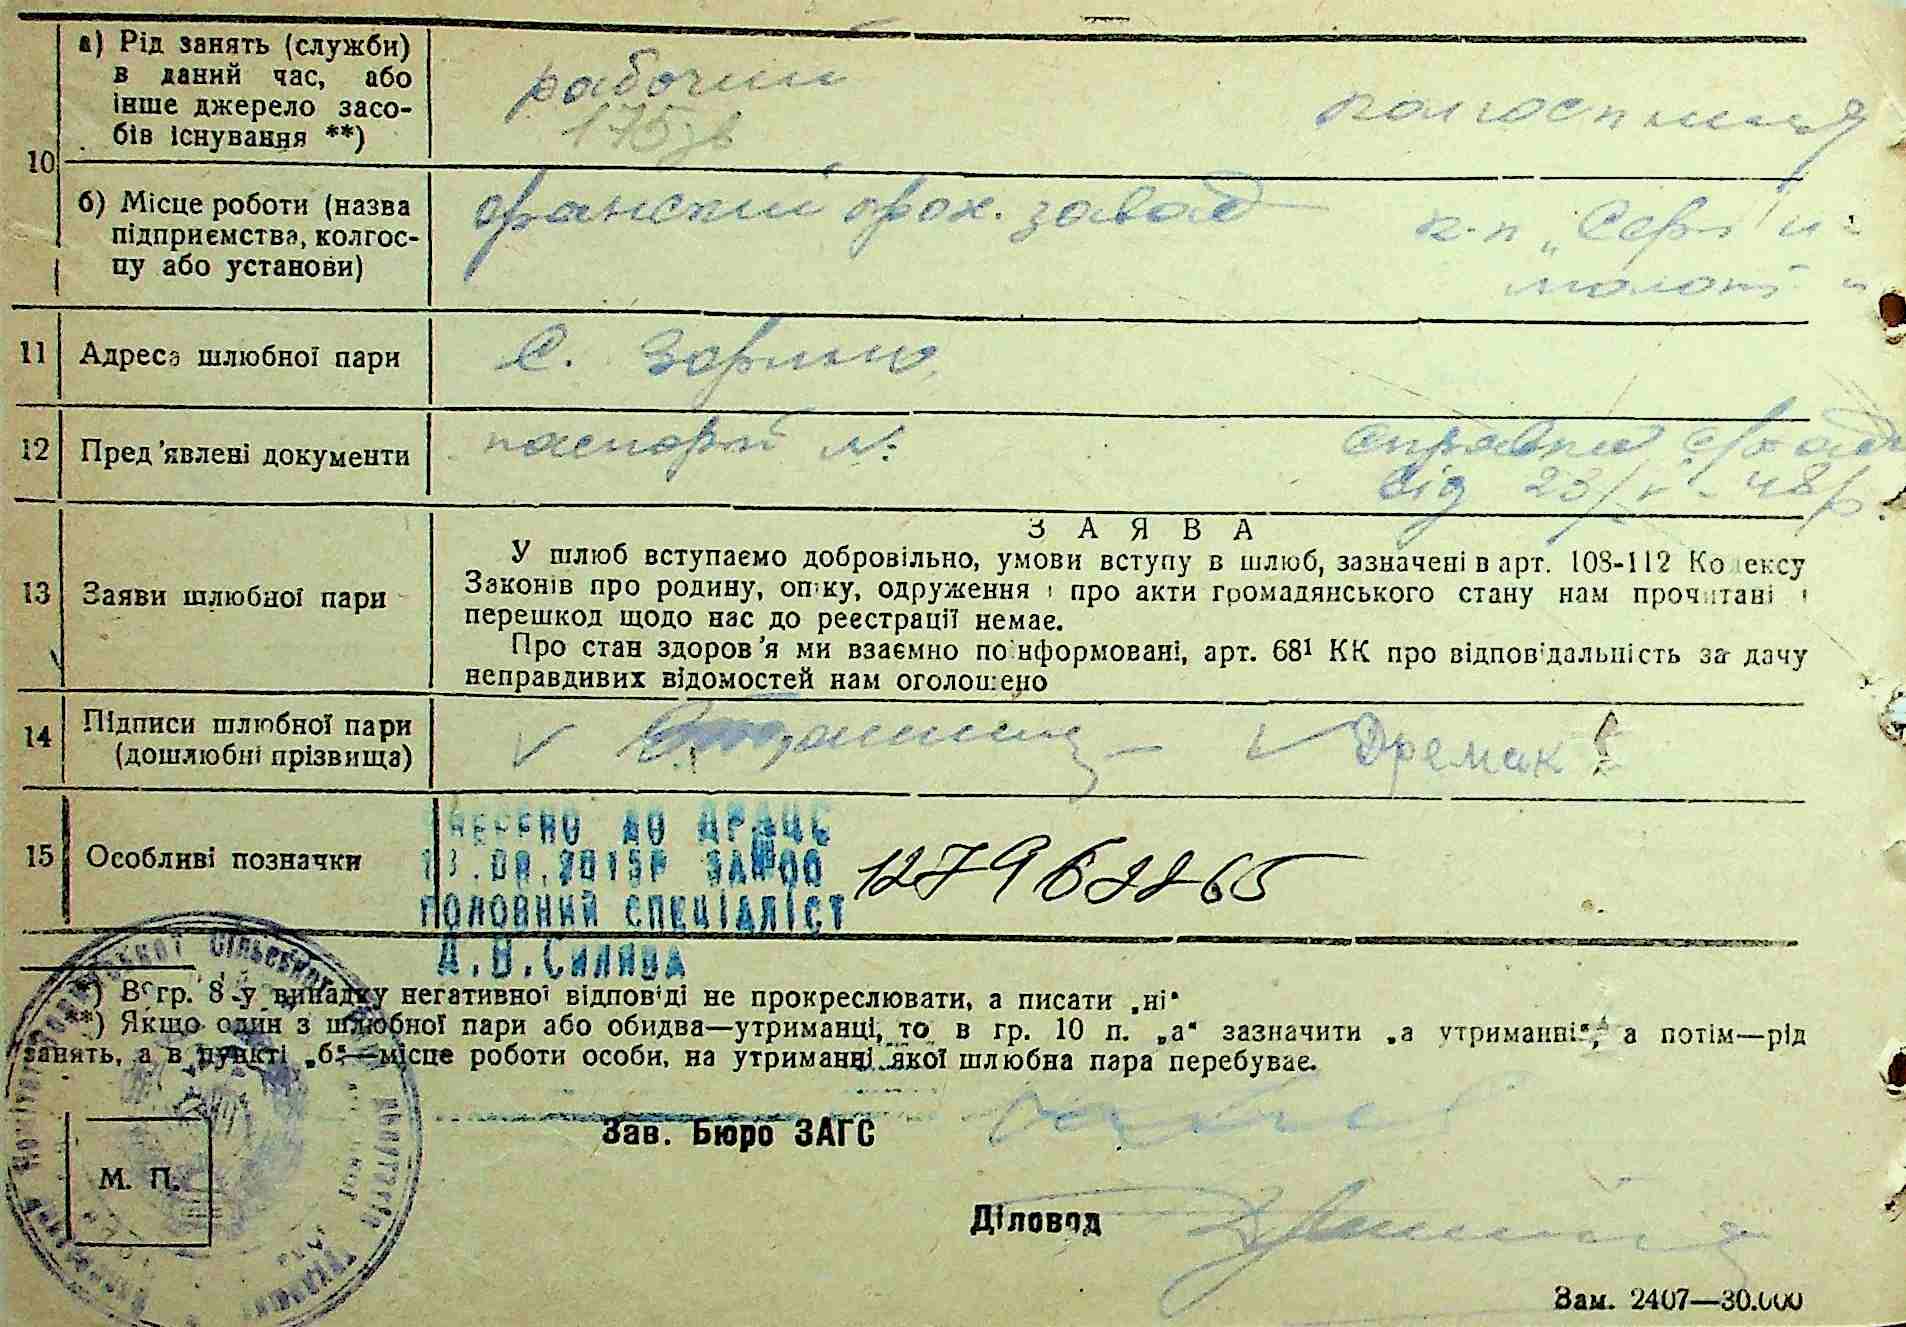 10
а) Рід занять (служби)
в даний час, або
інше джерело засо-
бів існування **)
рабочий
колгоспниця
б) Місце роботи (назва
підприємства, колгос-
пу або установи)
завод
к-п „Серп и
молот"
11 Адреса шлюбної пари
С. Зорино
12 Пред'явлені документи
паспорт №
справка
від 23/V - 48 р.
З А Я В А
13 Заяви шлюбної пари
У шлюб вступаємо добровільно, умови вступу в шлюб, зазначені в арт. 108-112 Кодексу
Законів про родину, опіку, одруження і про акти громадянського стану нам прочитані і
перешкод щодо нас до реєстрації немає.
Про стан здоров'я ми взаємно поінформовані, арт. 68¹ КК про відповідальність за дачу
неправдивих відомостей нам оголошено
14 Підписи шлюбної пари
(дошлюбні прізвища)
Дремак
15 Особливі позначки
ВНЕСЕНО ДО ДРАЦС
ГОЛОВНИЙ СПЕЦІАЛІСТ
*) В гр. 8 у випадку негативної відповіді не прокреслювати, а писати „ні"
**) Якщо один з шлюбної пари або обидва—утриманці, то в гр. 10 п. „а" зазначити „а утриманні", а потім—рід
занять, а в пункті „б"—місце роботи особи, на утриманні якої шлюбна пара перебуває.
М. П.
Зав. Бюро ЗАГС
Діловод
Зам. 2407—30.000